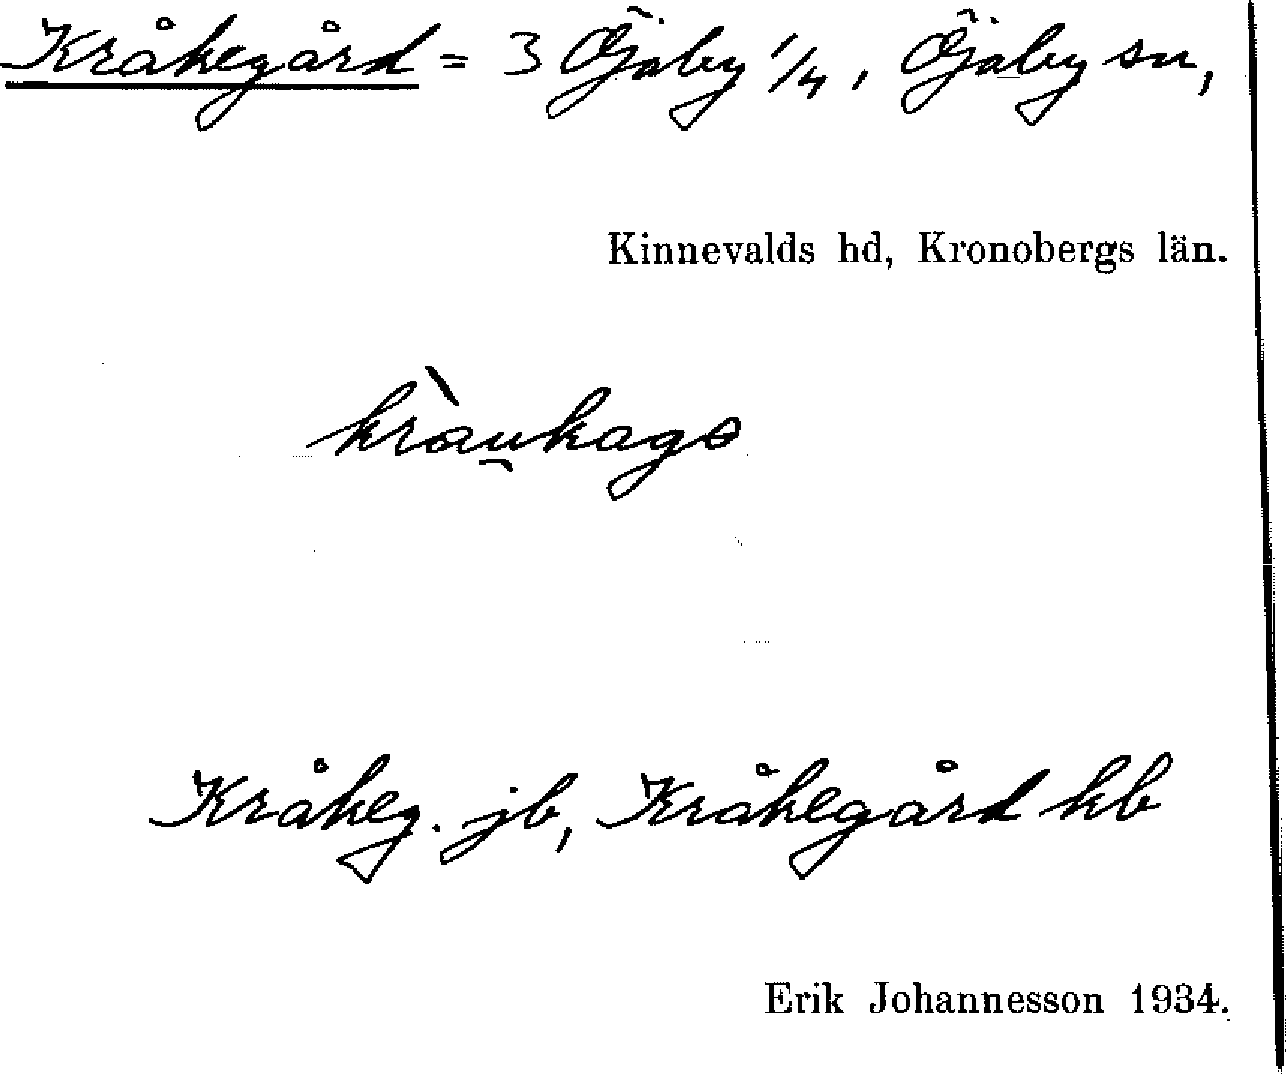 Kråkegård = 3 Öjaby 1/4, Öjaby sn,
Kinnevalds hd, Kronobergs län.
kràu̯kagɷ
Kråkeg. jb, Kråkegård hb
Erik Johannesson 1934.